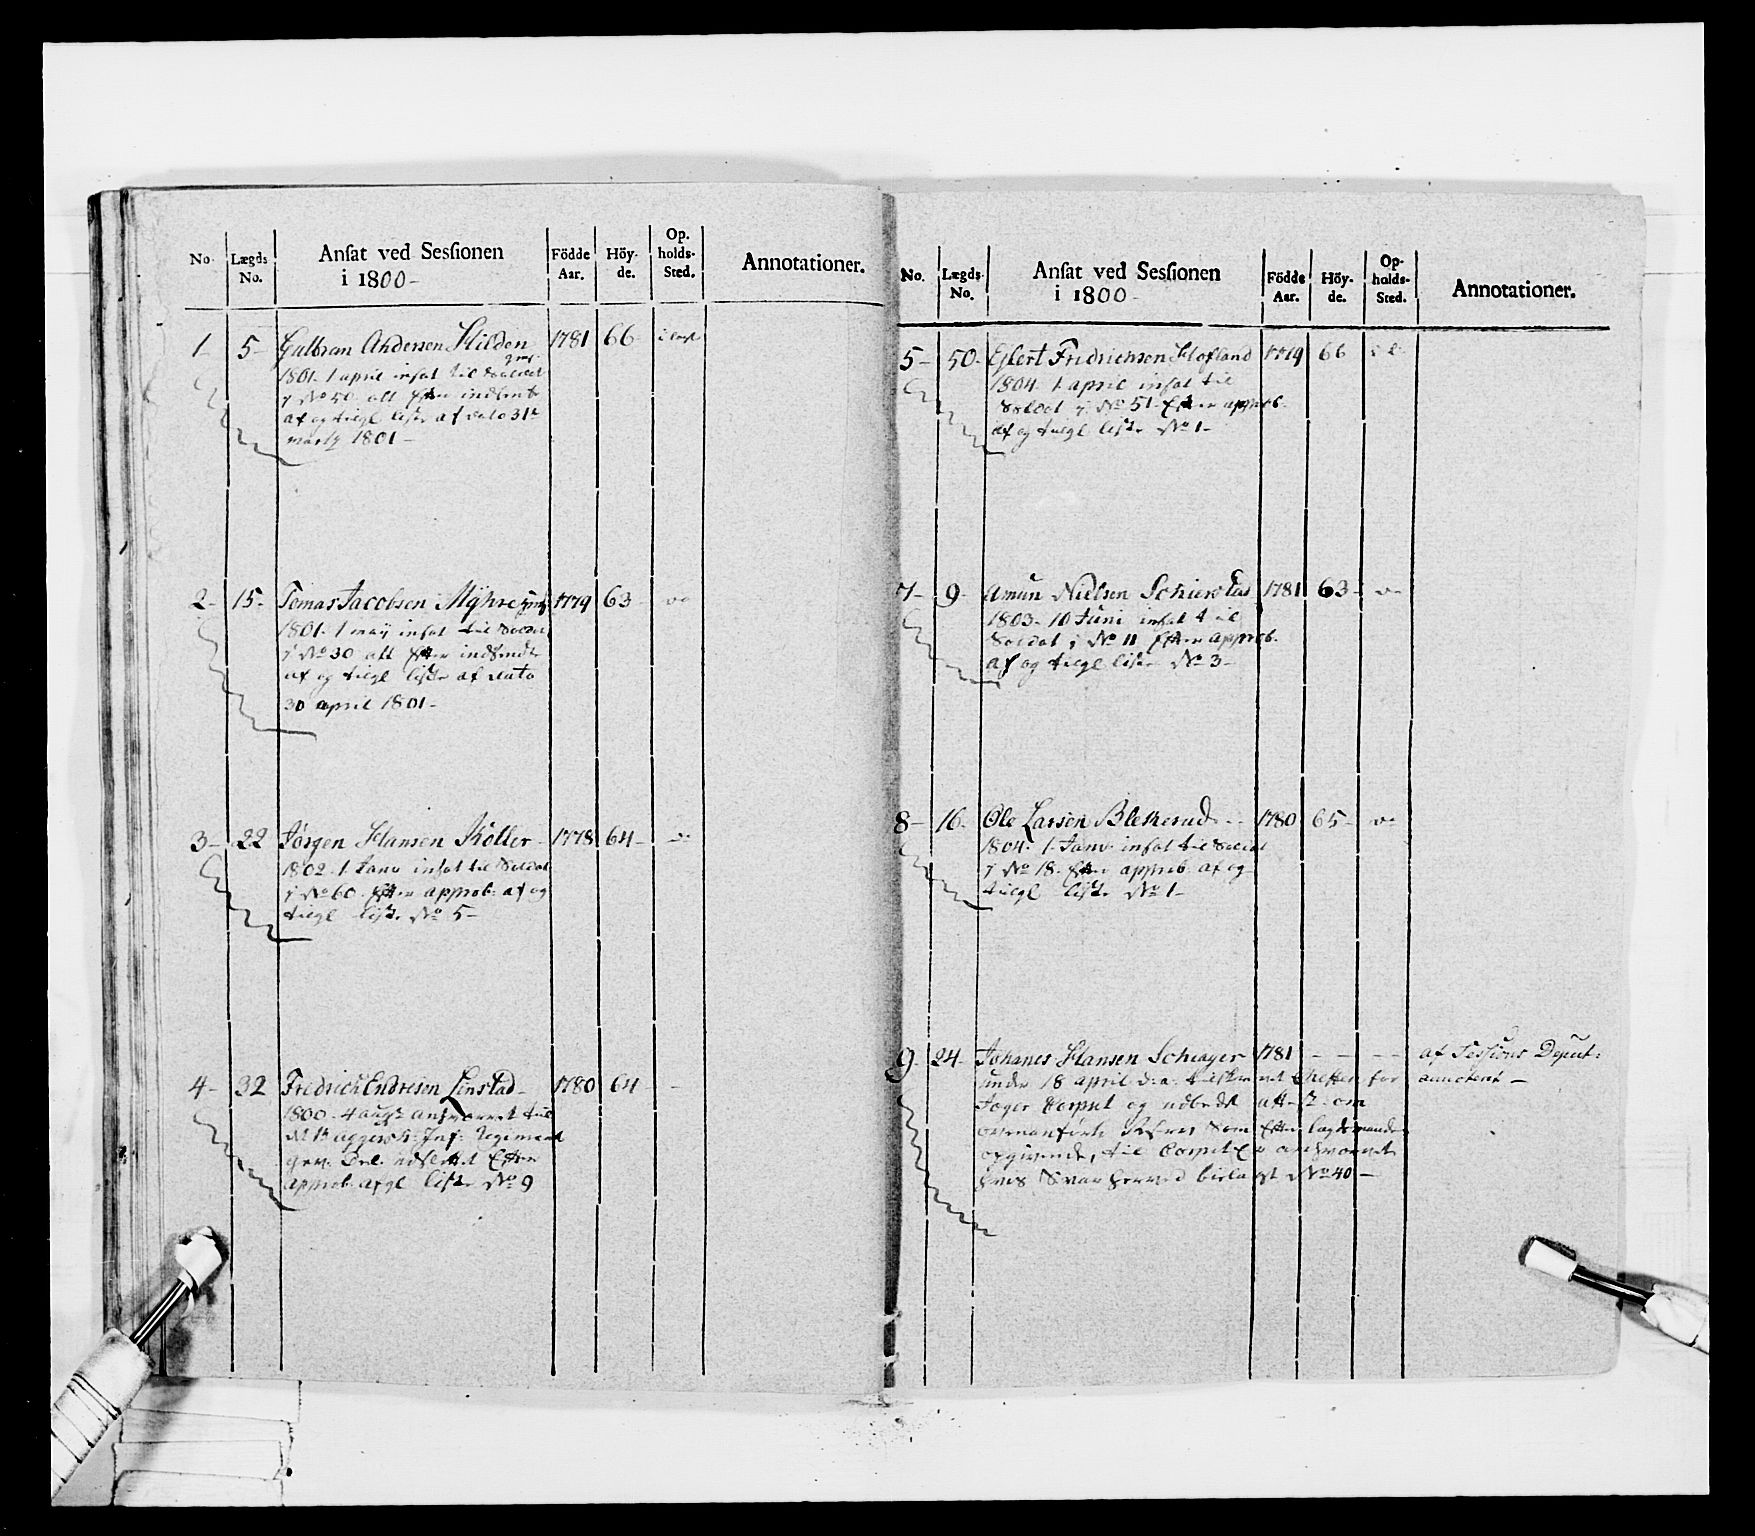 No. Lægds No. Ansat ved Sessionen i 1800- Födde Aar. Höy- de. Op. holds- Sted. Annotationer.
1- 5- Gulbran Andersen Hilden 1781 66
1801. 1 april insat til Soldat
i No 50. alt Efter indsente
af og tilgl liste af dato 31te
marty 1801-
2- 15- Tomas Jacobsen Myhre 1779 63- do
1801. 1 may insat til Soldat
i No 30 alt Efter indsendte
af og tilgl liste af dato
30 april 1801-
3- 22 Jörgen Hansen Köller- 1778 64- do
1802. 1. Janv insat til Soldat
i No 60. Efter approb: af og
tilgl liste No 5-
4- 32 Fredrich Endresen Linstad- 1780 64- -
1800. 4 augt ansvarret til
Inf: Regiment
Efter
approb. afgl liste No 9
No. Lægds- No. Ansat ved Sessionen i 1800- Födde Aar. Höy- de. Op- holds- Sted. Annotationer.
5- 50- Eylert Fridrichsen Hofland 1779 66
1804. 1. april insat til
Soldat i No 51. Efter approb.
af og tilgl liste No 1-
7- 9- Amun Nielsen 1781 63- do
1803. 10 Juni insat til
Soldat i No 11 Efter approb.
af og tilgl liste No 3-
8- 16- Ole Larsen Blekerud- 1780 65- do
1804. 1. Janv. insat til Soldat
i No 18. Efter approb. af og
tilgl liste No 1-
9- 24- Johanes Hansen 1781 - - - af Sessions Deput:
under 18 april d: a: Cheffen for annoteret -
Jæger Corpset og udbedt om
som Efter
opgivende, til Corpset
No 40-